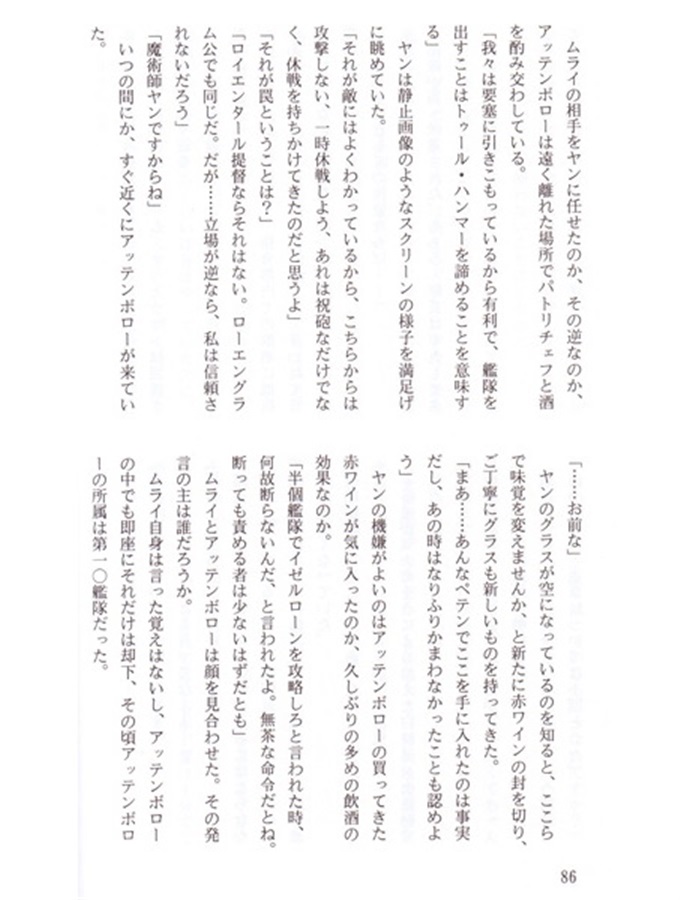 ムライの相手をヤンに任せたのか、その逆なのか、
アッテンボローは遠く離れた場所でパトリチェフと酒
を酌み交わしている。
「我々は要塞に引きこもっているから有利で、艦隊を
出すことはトゥール・ハンマーを諦めることを意味す
る」
　ヤンは静止画像のようなスクリーンの様子を満足げ
に眺めていた。
「それが敵にはよくわかっているから、こちらからは
攻撃しない、一時休戦しよう、あれは祝砲なだけでな
く、休戦を持ちかけてきたのだと思うよ」
「それが罠ということは？」
「ロイエンタール提督ならそれはない。ローエングラ
ム公でも同じだ。だが……立場が逆なら、私は信頼さ
れないだろう」
「魔術師ヤンですからね」
　いつの間にか、すぐ近くにアッテンボローが来てい
た。
「……お前な」
　ヤンのグラスが空になっているのを知ると、ここら
で味覚を変えませんか、と新たに赤ワインの封を切り、
ご丁寧にグラスも新しいものを持ってきた。
「まあ……あんなペテンでここを手に入れたのは事実
だし、あの時はなりふりかまわなかったことも認めよ
う」
　ヤンの機嫌がよいのはアッテンボローの買ってきた
赤ワインが気に入ったのか、久しぶりの多めの飲酒の
効果なのか。
「半個艦隊でイゼルローンを攻略しろと言われた時、
何故断らないんだ、と言われたよ。無茶な命令だとね。
断っても責める者は少ないはずだとも」
　ムライとアッテンボローは顔を見合わせた。その発
言の主は誰だろうか。
　ムライ自身は言った覚えはないし、アッテンボロー
の中でも即座にそれだけは却下、その頃アッテンボロ
ーの所属は第一〇艦隊だった。
86